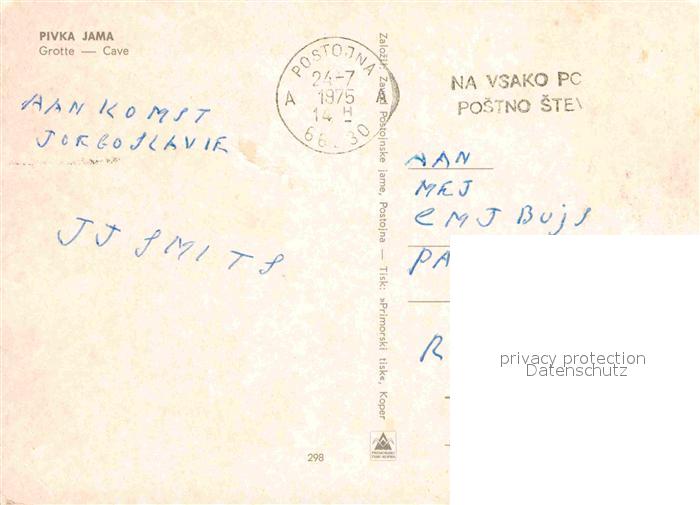 PIVKA JAMA
Grotte — Cave
POSTOJNA
24-7
1975
A A
14 H
66230
NA VSAKO PO
POŠTNO ŠTEV
AAN KOMST
JOEGOSLAVIE
JJ SMITS
Založil: Zavod Postojnske jame, Postojna — Tisk: »Primorski tisk«, Koper
AAN
MEJ
CMJ Bujs
PA
R
privacy protection
Datenschutz
298